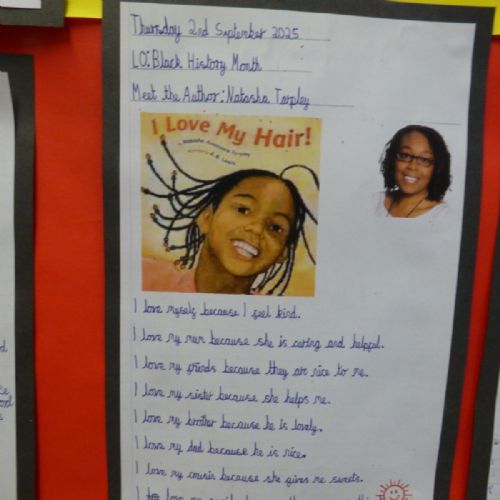 Thursday 2nd September 2025
LO: Black History Month
Meet the Author: Natasha Tarpley
I Love My Hair!
by Natasha Anastasia Tarpley
illustrated by E. B. Lewis
I love myself because I feel kind.
I love my mum because she is caring and helpful.
I love my friends because they are nice to me.
I love my sister because she helps me.
I love my brother because he is lovely.
I love my dad because he is nice.
I love my cousin because she gives me sweets.
I love my because